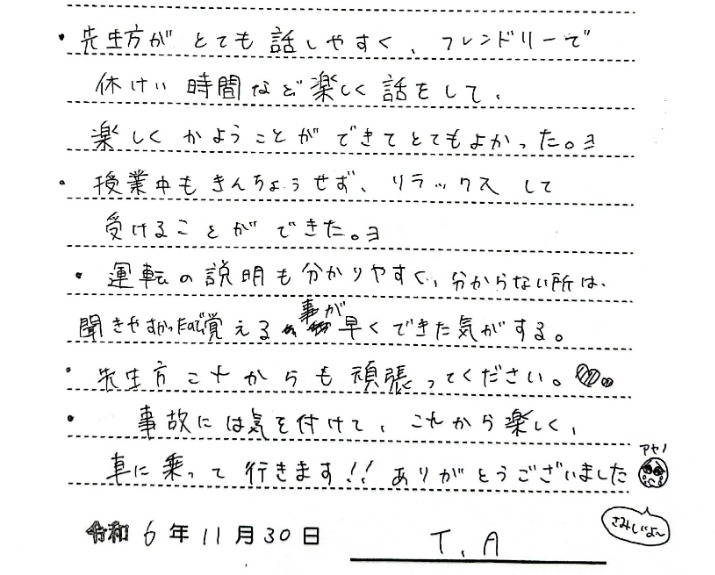 ・先生方が とても 話しやすく、フレンドリーで
休けい 時間など楽しく 話をして、
楽しく かようことが できてとてもよかった。ヨ
・授業中も きんちょうせず、リラックス して
受けることが できた。ヨ
・運転の説明も分かりやすく、分からない所は、
聞きやすかったので覚える事が早くできた気がする。
・先生方これからも 頑張ってください。
・事故には気を付けて、これから楽しく、
車に乗って 行きます!! ありがとうございました
アヤノ
さみしいよ〜
令和 6年 11月 30日
T.A